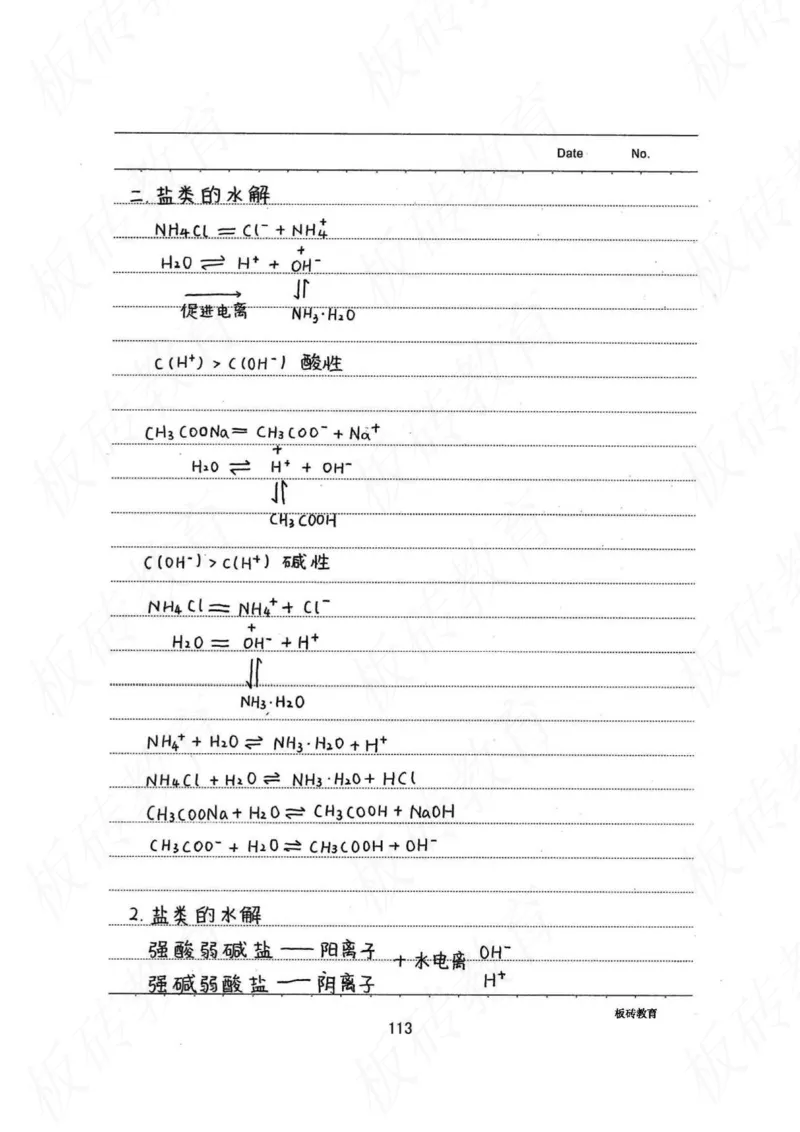 Date No.
二. 盐类的水解
NH₄Cl = Cl⁻ + NH₄⁺
+
H₂O ⇌ H⁺ + OH⁻
→ ⥮
促进电离 NH₃·H₂O
C(H⁺) > C(OH⁻) 酸性
CH₃COONa = CH₃COO⁻ + Na⁺
+
H₂O ⇌ H⁺ + OH⁻
⥮
CH₃COOH
C(OH⁻) > C(H⁺) 碱性
NH₄Cl = NH₄⁺ + Cl⁻
+
H₂O = OH⁻ + H⁺
⥮
NH₃·H₂O
NH₄⁺ + H₂O ⇌ NH₃·H₂O + H⁺
NH₄Cl + H₂O ⇌ NH₃·H₂O + HCl
CH₃COONa + H₂O ⇌ CH₃COOH + NaOH
CH₃COO⁻ + H₂O ⇌ CH₃COOH + OH⁻
2. 盐类的水解
强酸弱碱盐 —— 阳离子 + 水电离 OH⁻
强碱弱酸盐 —— 阴离子 H⁺
板砖教育
113